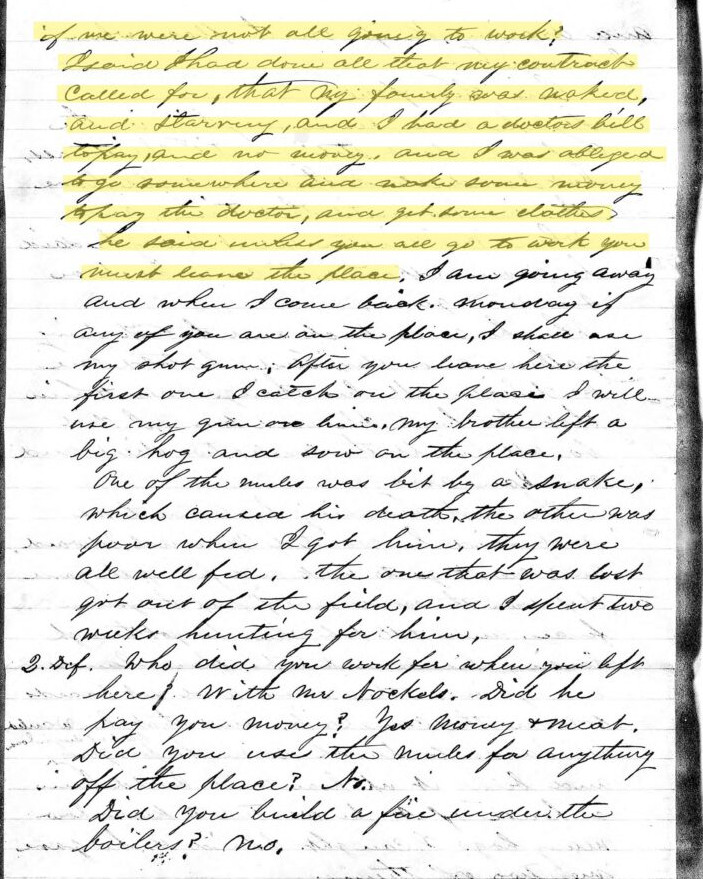 if we were not all going to work?
I said I had done all that my contract
called for, that my family was naked,
and starving, and I had a doctors bill
to pay, and no money, and I was obleged
to go somewhere and make some money
to pay the doctor, and get some clothes,
he said unless you all go to work you
must leave the place. I am going away
and when I come back. Monday if
any of you are on the place, I shall use
my shot gun; After you leave here the
first one I catch on the place I will
use my gun on him. My brother left a
big hog and sow on the place.
One of the mules was bit by a snake,
which caused his death, the other was
poor when I got him. they were
all well fed. the one that was lost
got out of the field, and I spent two
weeks hunting for him,
2. Def. Who did you work for when you left
here? With Mr Nockels. Did he
pay you money? Yes money & meat.
Did you use the mules for anything
off the place? No.
Did you build a fire under the
boilers? No.